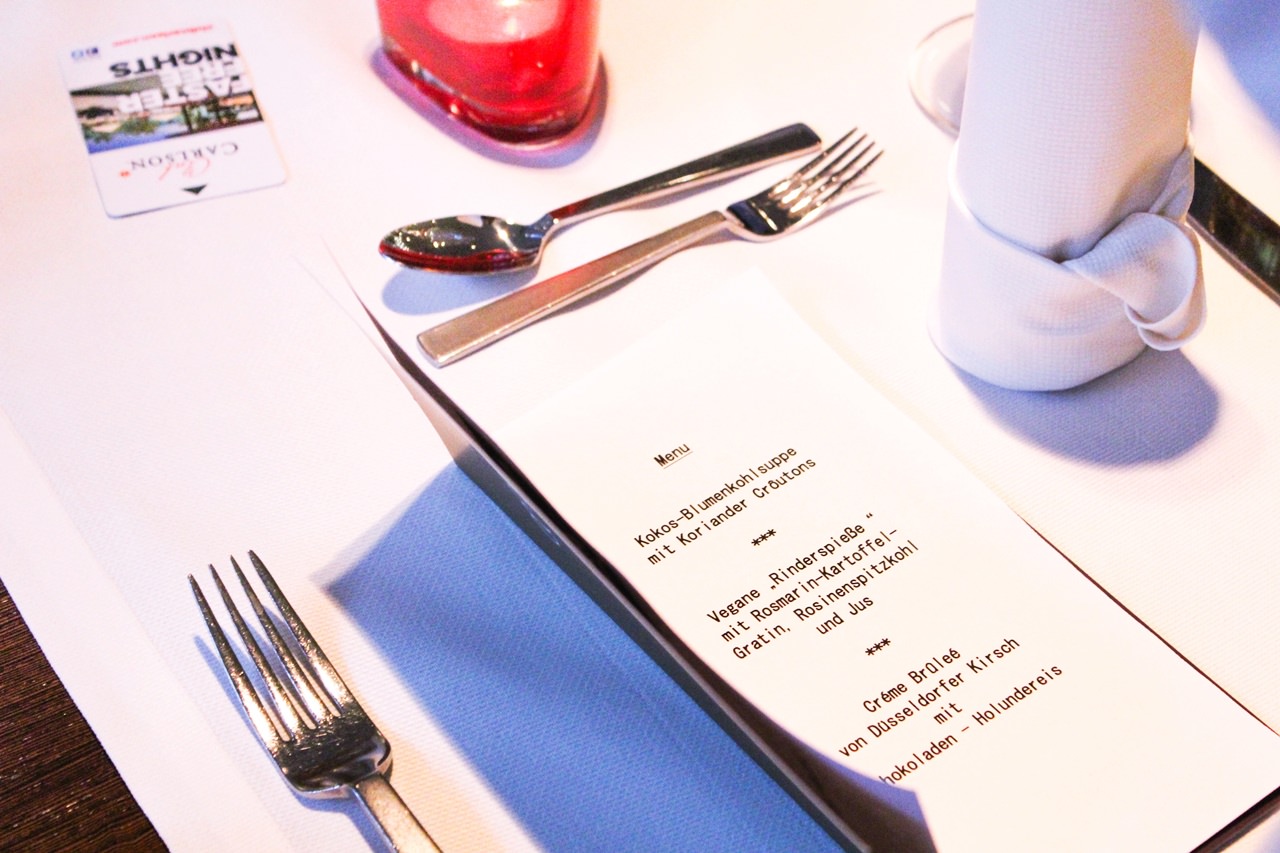 clubcarlson.com
EARN
FASTER
FREE
NIGHTS
Club
CARLSON
Menu
Kokos-Blumenkohlsuppe
mit Koriander Crôutons
***
Vegane „Rinderspieße“
mit Rosmarin-Kartoffel-
Gratin, Rosinenspitzkohl
und Jus
***
Créme Brûleé
von Düsseldorfer Kirsch
mit
hokoladen - Holundereis